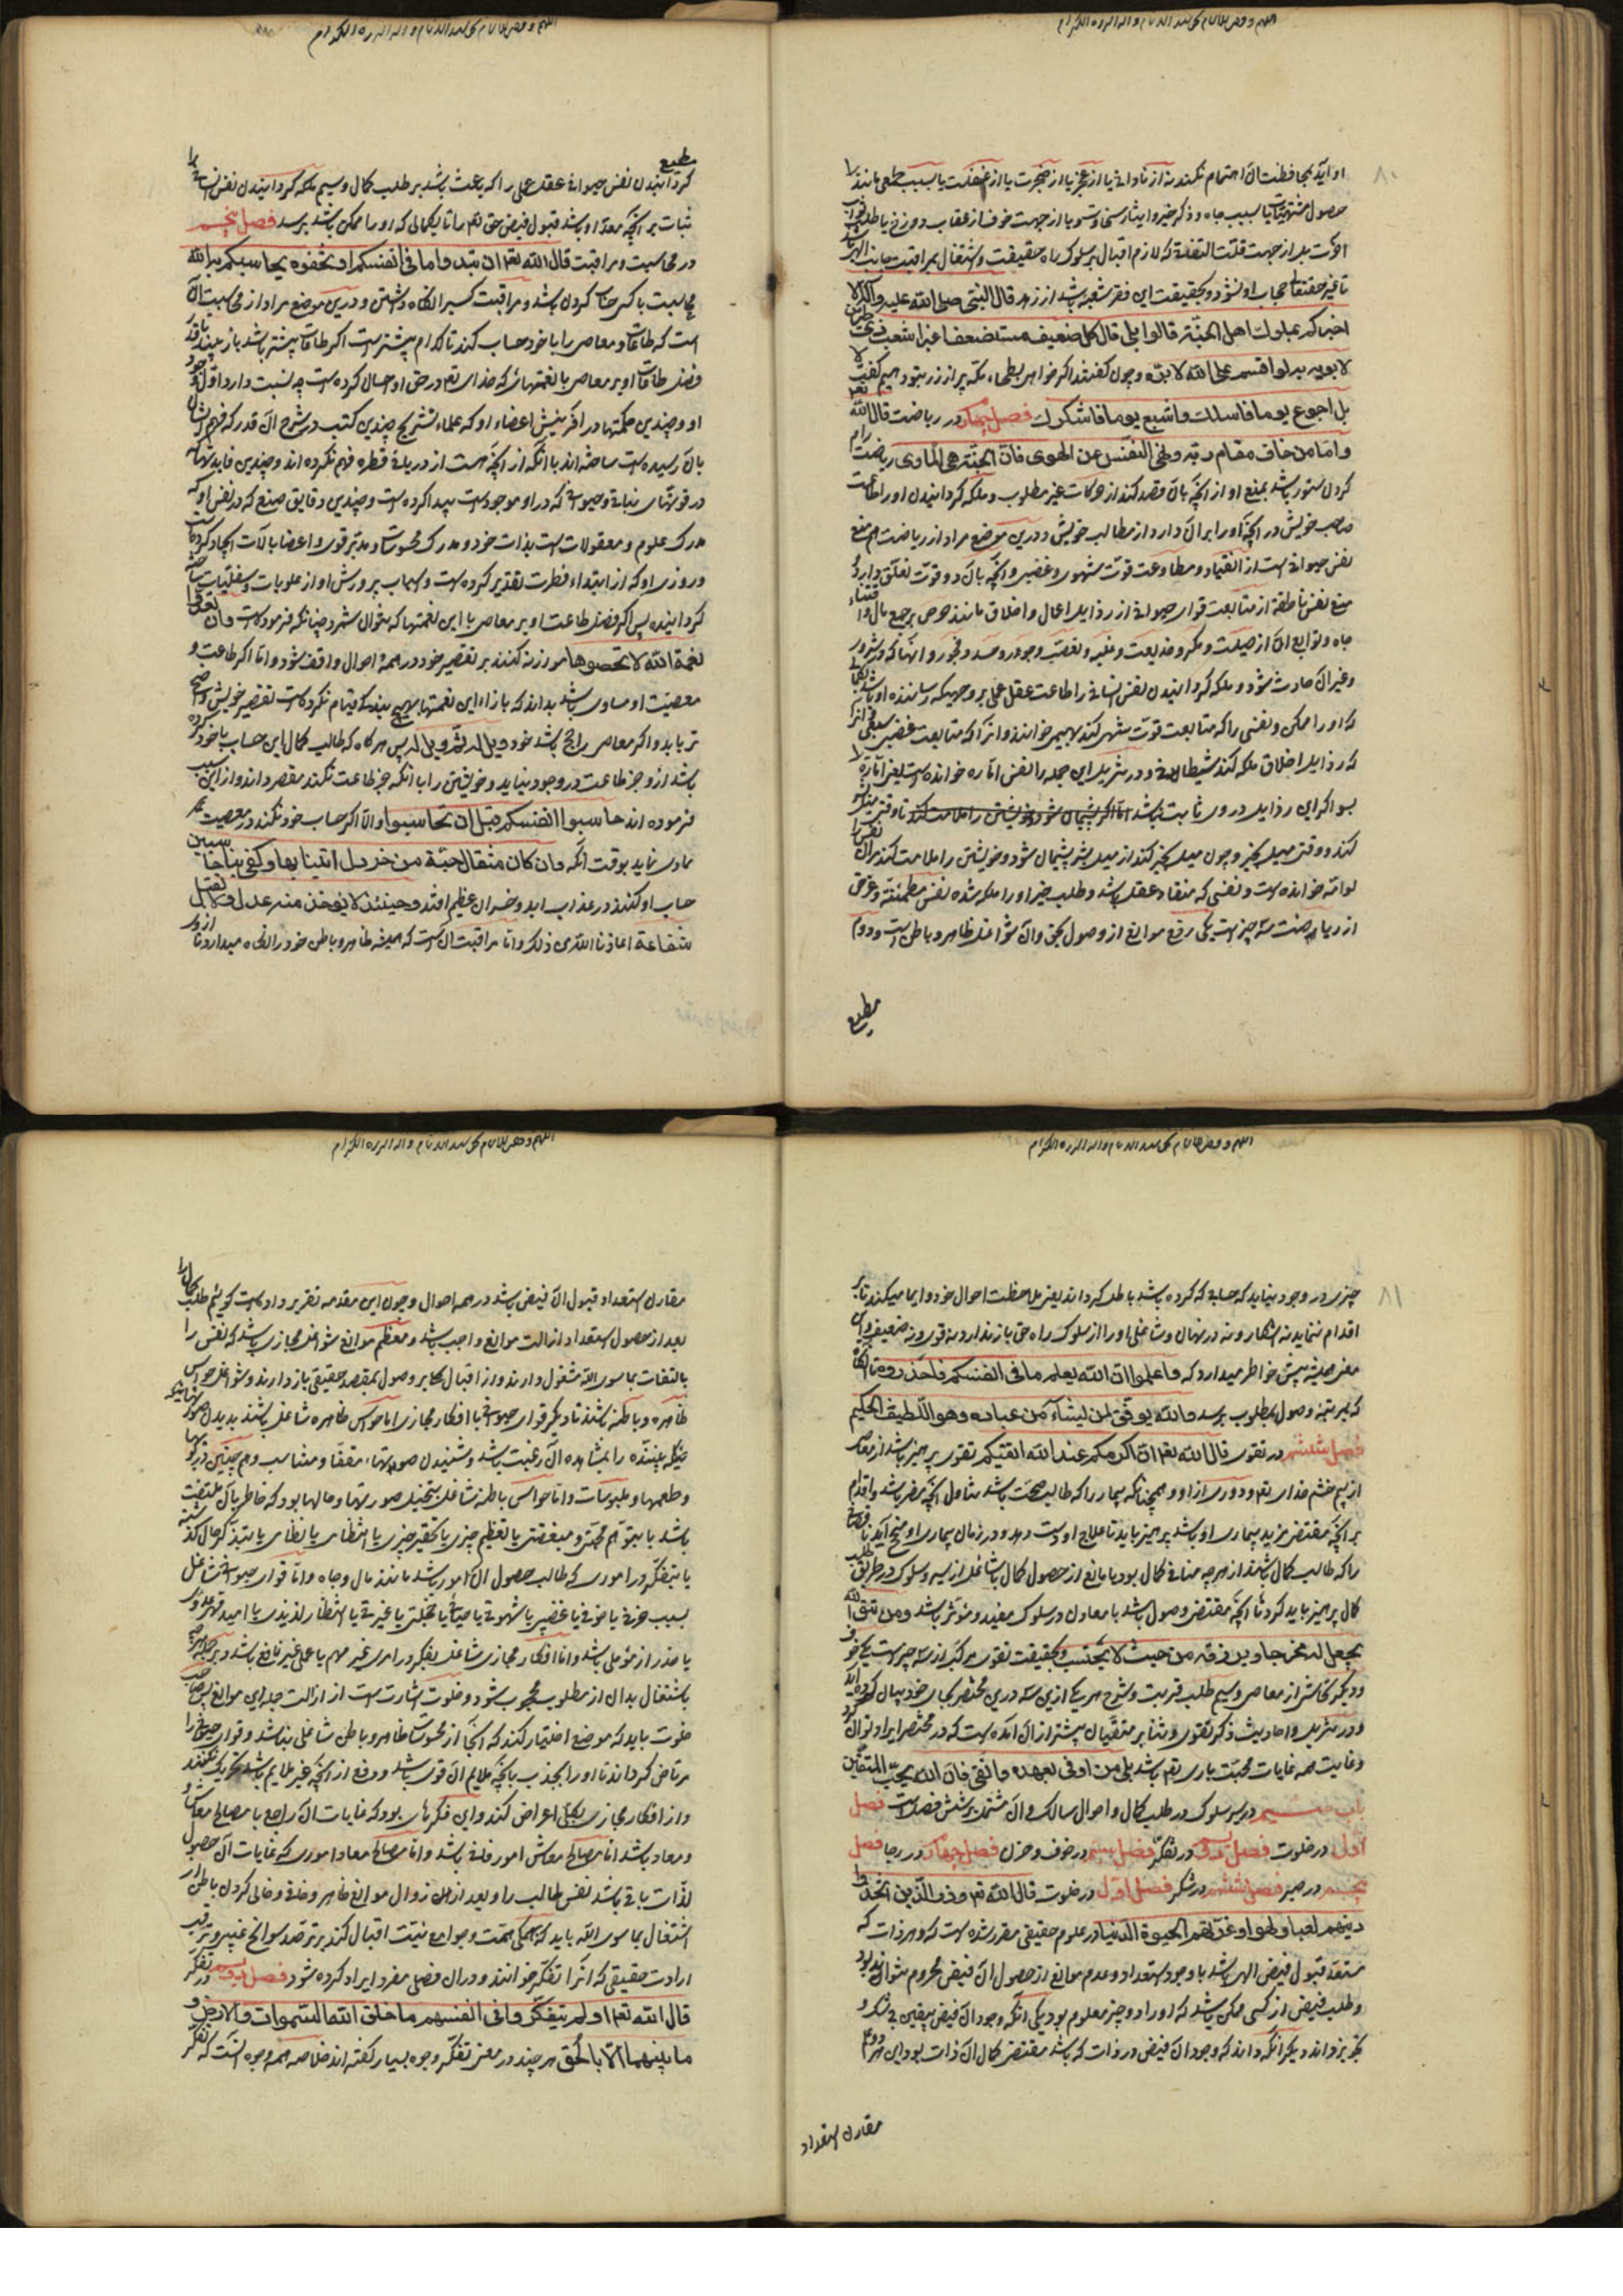 او آید بمحافظت آن اهتمام نکند نه از نادانی یا از عجز یا از ضجرت یا از غفلت یا بسبب طمعی مانند
حصول مشتهیات یا بسبب جاه و ذکر خیر و ایثار سخی و نسمو یا از جهت خوف از عقاب دوزخ یا طلب ثواب
آخرت بلر از جهت قلت التفاتی که لازم اقبال بر سلوک راه حقیقت و اشتغال بمراقبت جانب الهی باشد
تا غیر حقتعالی حجاب او نشود و بحقیقت این فقر شعبه باشد از زهد قال النبی صلی الله علیه وآله الا
اخبرکم بملوک اهل الجنة قالوا بلی قال کل ضعیف مستضعف اغبر اشعث ذی طمرین
لا یوبه به لو اقسم علی الله لابره و چون گفتند اگر خواهی بطحاء مکه پر از زر بتو دهیم گفت لا
بل اجوع یوما فاسألک واشبع یوما فاشکرک فصل چهارم در ریاضت قال الله تعم
واما من خاف مقام ربه ونهی النفس عن الهوی فان الجنة هی المأوی ریاضت رام
کردن ستور باشد بمنع او از آنچه بآن قصد کند از حرکات غیر مطلوب و ملکه گردانیدن او را طاعت
صاحب خویش در آنچه او را بر آن دارد از مطالب خویش و درین موضع مراد از ریاضت هم منع
نفس حیوانی است از انقیاد و مطاوعت قوت شهوی و غضبی و آنچه بآن دو قوت تعلق دارد و
منع نفس ناطقه از متابعت قوای حیوانی از رذایل اعمال و اخلاق مانند حرص بر جمع مال و اقتناء
جاه و توابع آن از حیلت و مکر و خدیعت و غلبه و تعصب و حقد و حسد و فجور و انهماک در شرور
و غیر آن حادث شود و ملکه گردانیدن نفس انسانی را طاعت عقل عملی بر وجهی که رساننده او باشد بکمالی
که او را ممکن و نفسی را که متابعت قوت شهوی کند بهیمی خوانند و آنرا که متابعت غضبی سبعی و آنرا
که رذایل اخلاق ملکه کند شیطانی و در تنزیل این جمله را نفس اماره خوانده است یعنی اماره
بسو اگر این رذایل در وی ثابت باشد اما اگر پشیمان شود و خویشتن را ملامت کند تا وقتی میل شر
کند و وقتی میل بخیر و چون میل بخیر کند از میل بشر پشیمان شود و خویشتن را ملامت کند بر آن نفس را
لوامه خوانده است و نفسی که منقاد عقل باشد و طلب خیر او را ملکه شده نفس مطمئنه و غرض
از ریاضت سه چیز است یکی رفع موانع از وصول بحق و آن شواغل ظاهر و باطن است و دوم
مطیع
گردانیدن نفس حیوانی عقل عملی را که باعث باشد بر طلب کمال و سیم ملکه گردانیدن نفس انسانی را
ثبات بر آنچه معد او باشد قبول فیض حق تعم را تا بکمالی که او را ممکن باشد برسد فصل پنجم
در محاسبت و مراقبت قال الله تعم ان تبدوا ما فی انفسکم او تخفوه یحاسبکم به الله
محاسبت با کسی حساب کردن باشد و مراقبت کسیرا نگاه داشتن و درین موضع مراد از محاسبت آن
است که طاعات و معاصی را با خود حساب کند تا کدام بیشتر است اگر طاعات بیشتر باشد باز بیند تا قدر
فضل طاعات او بر معاصی با نعمتهائی که خدای تعم در حق او احسان کرده است چه نسبت دارد اول وجود
او و چندین حکمتها در آفرینش اعضاء او که علماء تشریح چندین کتب در شرح آن قدر که فهم ایشان
بآن رسیده است ساخته اند با آنکه از آنچه هست از دریائی قطره فهم نکرده اند و چندین فایدتها که
در قوتهای نباتی و حیوانی که در او موجود است پیدا کرده است و چندین دقایق صنع که در نفس او که
مدرک علوم و معقولات است بذات خود و مدرک محسوسات و مدبر قوی و اعضا بآلات ایجاد کرده است
و روزی او که از ابتداء فطرت تقدیر کرده است و اسباب پرورش او از علویات و سفلیات ساخته
گردانیده پس اگر فضل طاعت او بر معاصی با این نعمتها که نتوان شمرد چنانکه فرموده است وان تعدوا
نعمة الله لا تحصوها موازنه کنند بر تقصیر خود در همه احوال واقف شود و اما اگر طاعت و
معصیت او مساوی باشد بداند که بازاء این نعمتها بهیچ بندگی قیام نکرده است تقصیر خویش واضح
تر یابد و اگر معاصی راجح باشد خود ویل له ثم ویل له پس هر گاه که طالب کمال این حساب با خود کرده
باشد از و جز طاعت در وجود نیاید و خویشتن را با آنکه جز طاعت نکند مقصر داند و از این سبب
فرموده اند حاسبوا انفسکم قبل ان تحاسبوا والا اگر حساب خود نکند در معصیت
مادی نماید بوقت آنکه وان کان مثقال حبة من خردل اتینا بها وکفی بنا حاسبین
حساب او کنند در عذاب ابد و خسران عظیم افتد وحینئذ لا یؤخذ منه عدل ولا تقبل
شفاعة اعاذنا الله من ذلک و اما مراقبت آن است که همیشه ظاهر و باطن خود را نگاه میدارد تا از وی
چیزی در وجود نیاید که حسابی که کرده باشد باطل گرداند یعنی ملاحظت احوال خود دایما میکند تا بر
اقدام ننماید نه آشکارا و نه در نهان و شاغلی او را از سلوک راه حق باز ندارد نه قوی و نه ضعیف و این
معنی همیشه پیش خاطر میدارد که واعلموا ان الله یعلم ما فی انفسکم فاحذروه تا آنگاه
که بمرتبه وصول بمطلوب برسد والله یوفق لمن یشاء من عباده وهو اللطیف الحکیم
فصل ششم در تقوی قال الله تعم ان اکرمکم عند الله اتقیکم تقوی پرهیز باشد از معاصی
از بیم خشم خدای تعم و دوری از او و همچنانکه بیمار را که طالب صحت باشد تناول آنچه مضر باشد و اقدام
بر آنچه مقتضی مزید بیماری او باشد پرهیز باید تا علاج او دست دهد و در زمان بیماری او منجح آید ناقصان
را که طالب کمال باشند از هر چه منافی کمال بود یا مانع از حصول کمال یا شاغل از سیر و سلوک در طریق طلب
کمال پرهیز باید کرد تا آنچه مقتضی وصول باشد یا معاون در سلوک مفید و مؤثر باشد ومن یتق الله
یجعل له مخرجا ویرزقه من حیث لا یحتسب و بحقیقت تقوی مرکب از سه چیز است یکی خوف
و دیگر تحاشی از معاصی و سیم طلب قربت و شرح هر یک ازین سه درین مختصر بجای خود بیان کرده آید
و در تنزیل و احادیث ذکر تقوی و ثنا بر متقیان بیشتر از آن آمده است که در مختصر ایراد توان کرد
و غایت همه غایات محبت باری تعم باشد بلی من اوفی بعهده واتقی فان الله یحب المتقین
باب سیم در سیر و سلوک در طلب کمال و احوال سالک و آن مشتمل بر شش فصل است فصل
اول در خلوت فصل دوم در تفکر فصل سیم در خوف و حزن فصل چهارم در رجا فصل
پنجم در صبر فصل ششم در شکر فصل اول در خلوت قال الله تعم وذر الذین اتخذوا
دینهم لعبا ولهوا وغرتهم الحیوة الدنیا در علوم حقیقی مقرر شده است که هر ذات که
مستعد قبول فیض الهی باشد با وجود استعداد و عدم موانع از حصول آن فیض محروم نتواند بود
و طلب فیض از کسی ممکن باشد که او را دو چیز معلوم بود یکی آنکه وجود آن فیض بیقین بی شک و
تجویز داند و دیگر آنکه داند که وجود آن فیض در ذات که باشد مقتضی کمال آن ذات بود این هر دو علم
مقارن استعداد
مقارن استعداد قبول آن فیض باشد در همه احوال و چون این مقدمه تقریر داده است گوئیم طلب کمال را
بعد از حصول استعداد ازالت موانع واجب باشد و معظم موانع شواغل مجازی باشد که نفس را
بالتفات بما سوی الله مشغول دارند و از اقبال کلی بر وصول بمقصد حقیقی باز دارند و شواغل حواس
ظاهره و باطنه باشند تا دیگر قوای حیوانی یا افکار مجازی اما حواس ظاهره شاغل باشند بدیدن صورتهائیکه
بیننده را بمشاهده آن رغبت باشد و شنیدن صوتهاء مقفا و متناسب و همچنین در بویها
و طعمها و ملموسات و اما حواس باطنه شاغل بتخیل صورتها و حالها بود که خاطر بآن ملتفت
باشد یا بتوهم محبتی و مبغضتی یا تعظیم چیزی یا تحقیر چیزی یا انتظامی یا بی نظامی یا بتذکر حال گذشته
یا بتفکر در اموری که طالب حصول آن امور باشد مانند مال و جاه و اما قوای حیوانی شاغل
بسبب حزنی یا خوفی یا غضبی یا شهوتی یا خیانتی یا خجلتی یا غیرتی یا انتظار لذیذی یا امید قهر عدوی
یا حذر از مؤلمی باشد و اما افکار مجازی شاغل بتفکر در امری غیر مهم یا علمی غیر نافع باشد و بر جمله هر چه
باشتغال بدان از مطلوب محجوب شود و خلوت اشارت است از ازالت جمله این موانع پس صاحب
خلوت باید که موضعی اختیار کند که آنجا از محسوسات ظاهر و باطن شاغلی نباشد و قوای حیوانی را
مرتاض گرداند تا او را بجذب بآنچه ملایم آن قوی باشد و دفع از آنچه غیر ملایم باشد تحریک نکنند
و از افکار مجازی بکلی اعراض کند و این فکرهایی بود که غایات آن راجع با مصالح معاش و
و معاد باشد اما مصالح معاش امور فانی باشد و اما مصالح معاد اموری که غایات آن حصول
لذات باقی باشد نفس طالب را و بعد از این زوال موانع ظاهر و خلوت و خالی کردن باطن از
اشتغال بما سوی الله باید که بهمگی همت و جوامع نیت اقبال کند بر ترصد سوانح غیبی و ترقب
ارادت حقیقی که آنرا تفکر خوانند و در آن فصلی مفرد ایراد کرده شود فصل دوم در تفکر
قال الله تعم اولم یتفکروا فی انفسهم ما خلق الله السموات والارض و
ما بینهما الا بالحق هر چند در معنی تفکر وجوه بسیار گفته اند خلاصه همه وجوه آنست که تفکر